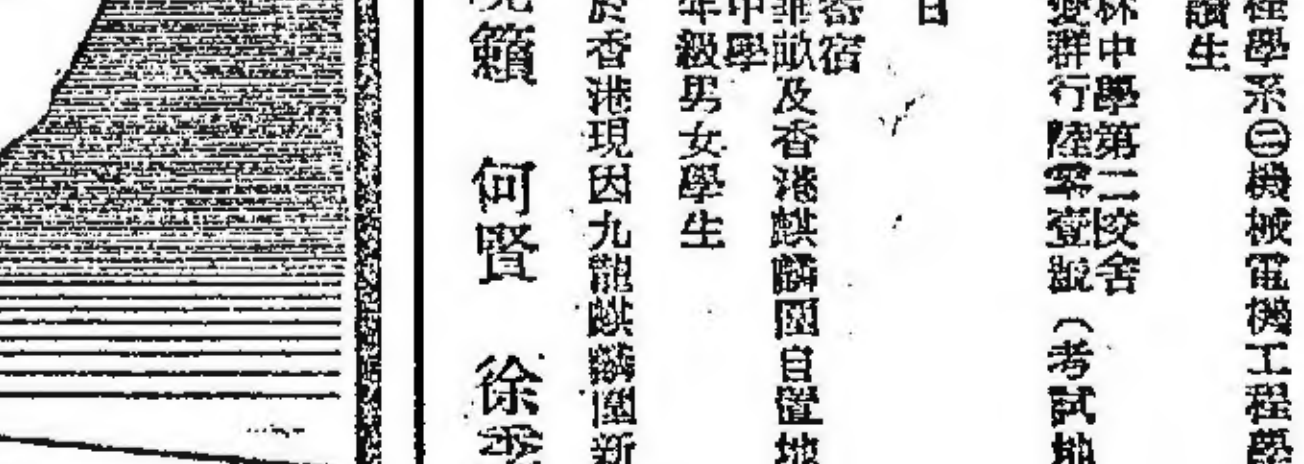 程學系㊂機械電機工程學
讀生
林中學第二校舍
愛群行陸零壹號（考試地
日
寄宿
畝及香港麒麟圍自置地
中學
年級男女學生
於香港現因九龍麒麟圍新
籟 何賢 徐